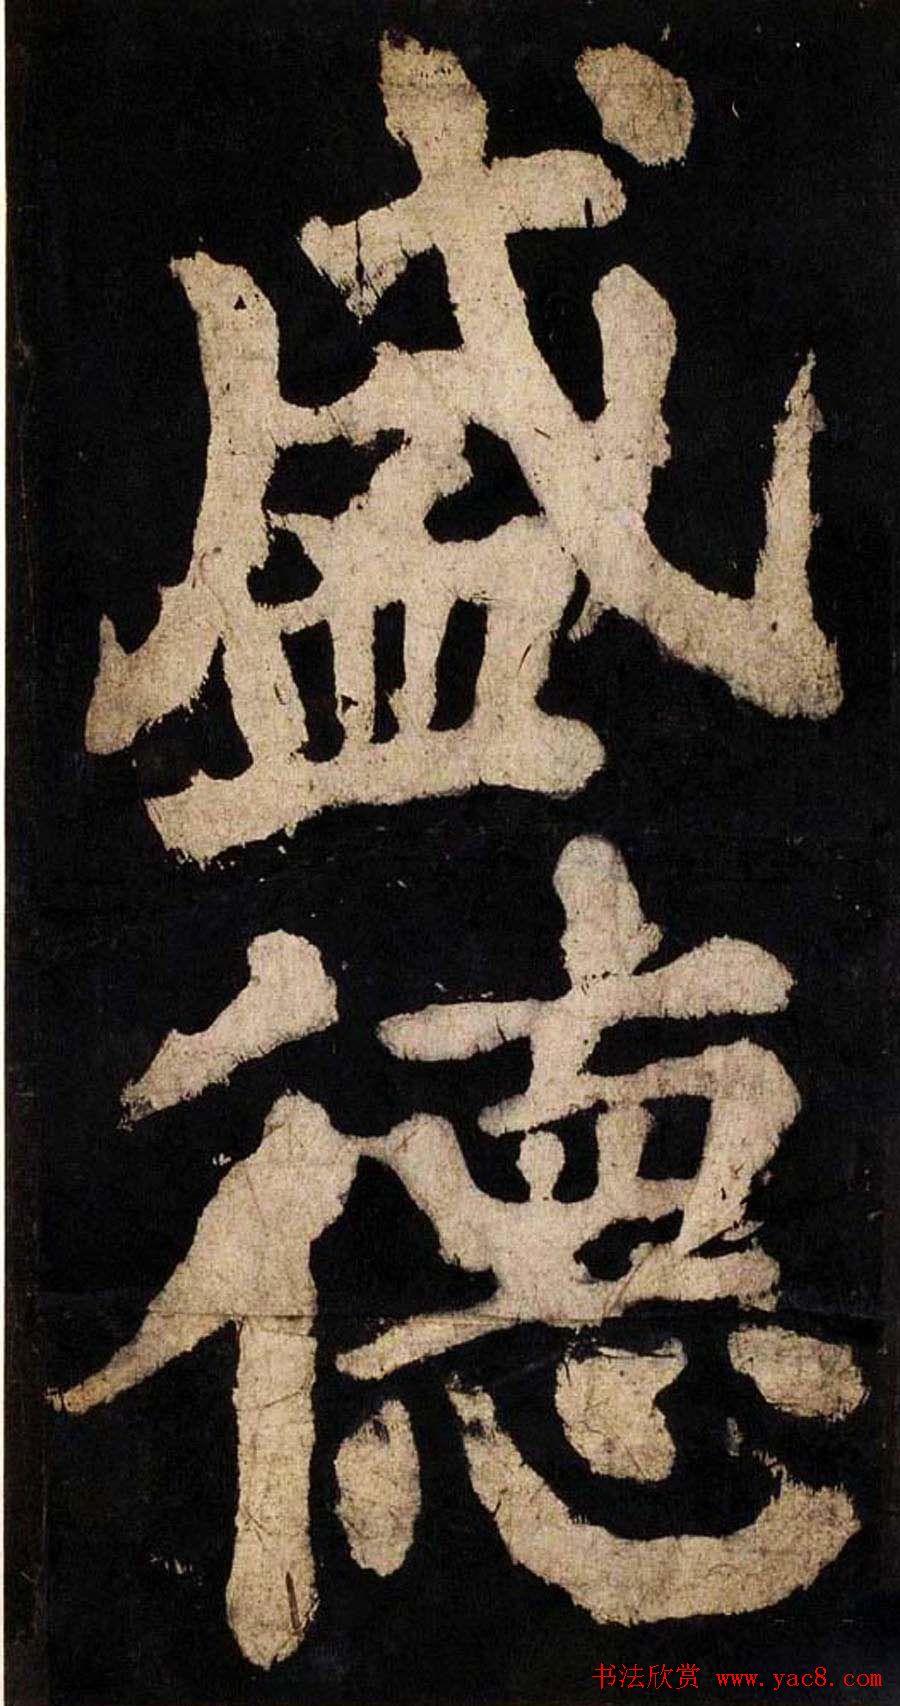 盛
德
书法欣赏 www.yac8.com